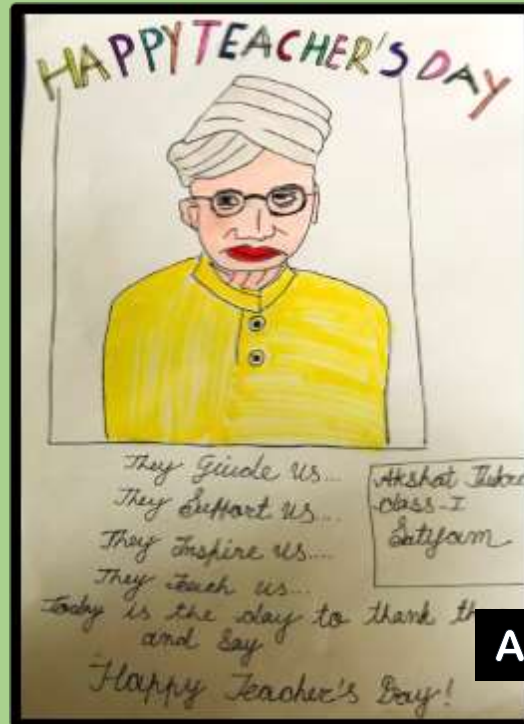 HAPPY TEACHER'S DAY
They Guide us...
They Support us....
They Inspire us....
They Teach us...
Today is the day to thank
and say
Happy Teacher's Day!
Akshat
class-I
Satyam
A